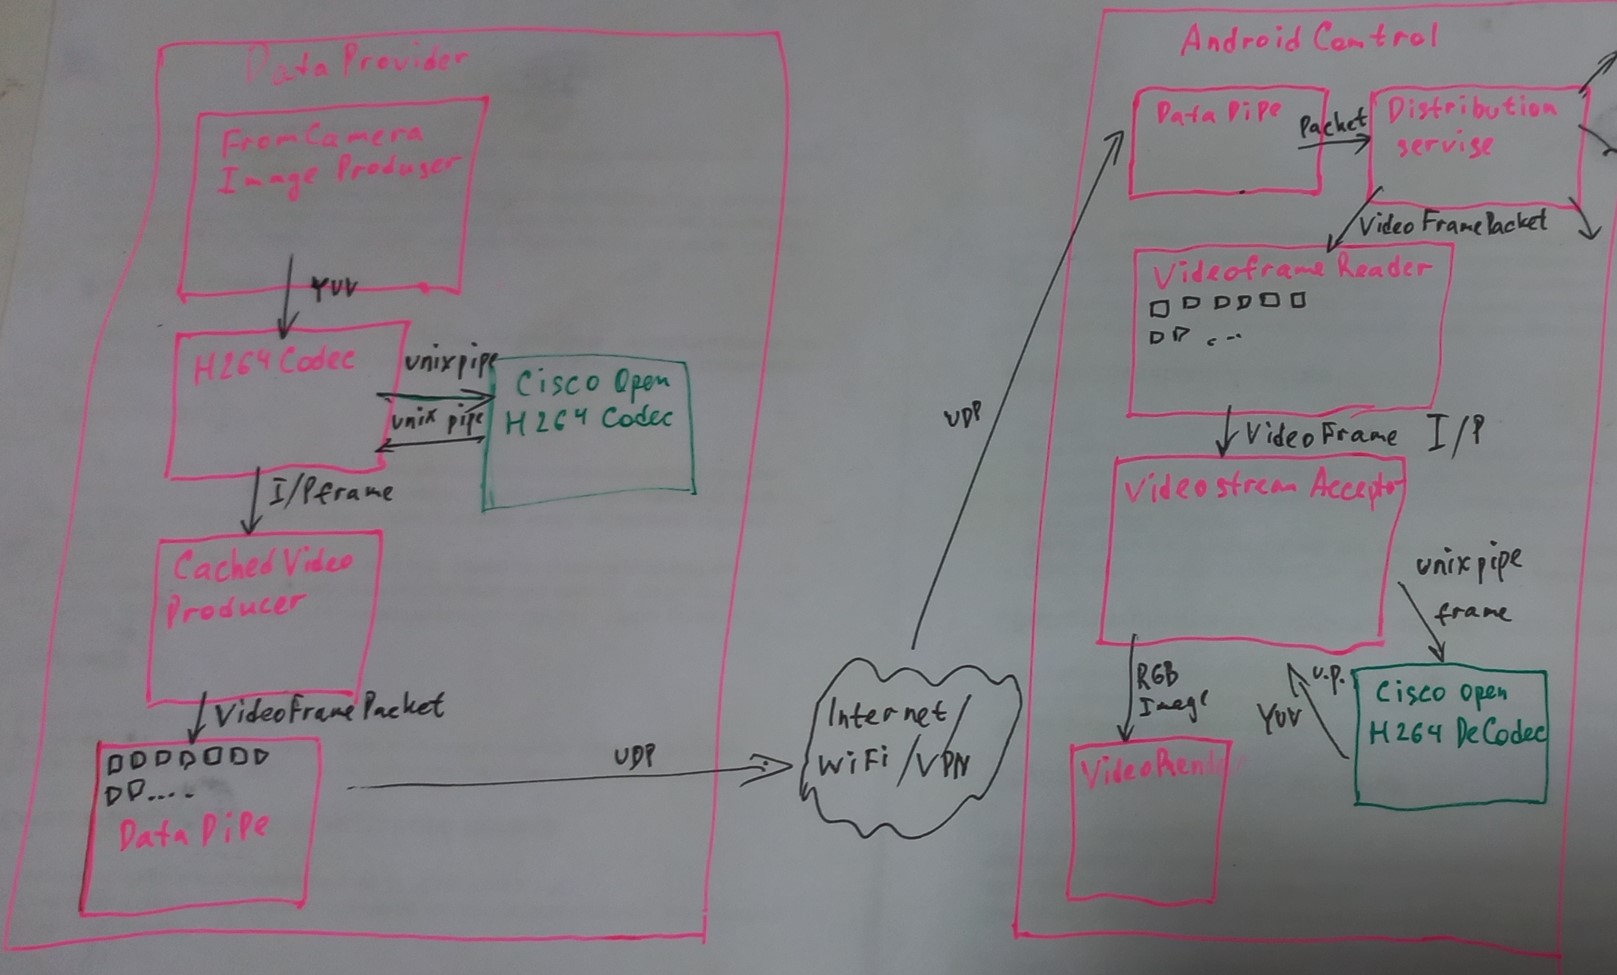 Data Provider
From Camera
Image Produser
YUV
H264 Codec
unixpipe
unix pipe
Cisco Open
H264 Codec
I/Pframe
Cached Video
Producer
VideoFramePacket
Data PiPe
UDP
Internet/
WiFi/VPN
UDP
Android Control
Data PiPe
Packet
Distribution
servise
VideoFramePacket
Videoframe Reader
VideoFrame I/P
Videostream Acceptor
unixpipe
frame
RGB
Image
u.p.
YUV
Cisco Open
H264 DeCodec